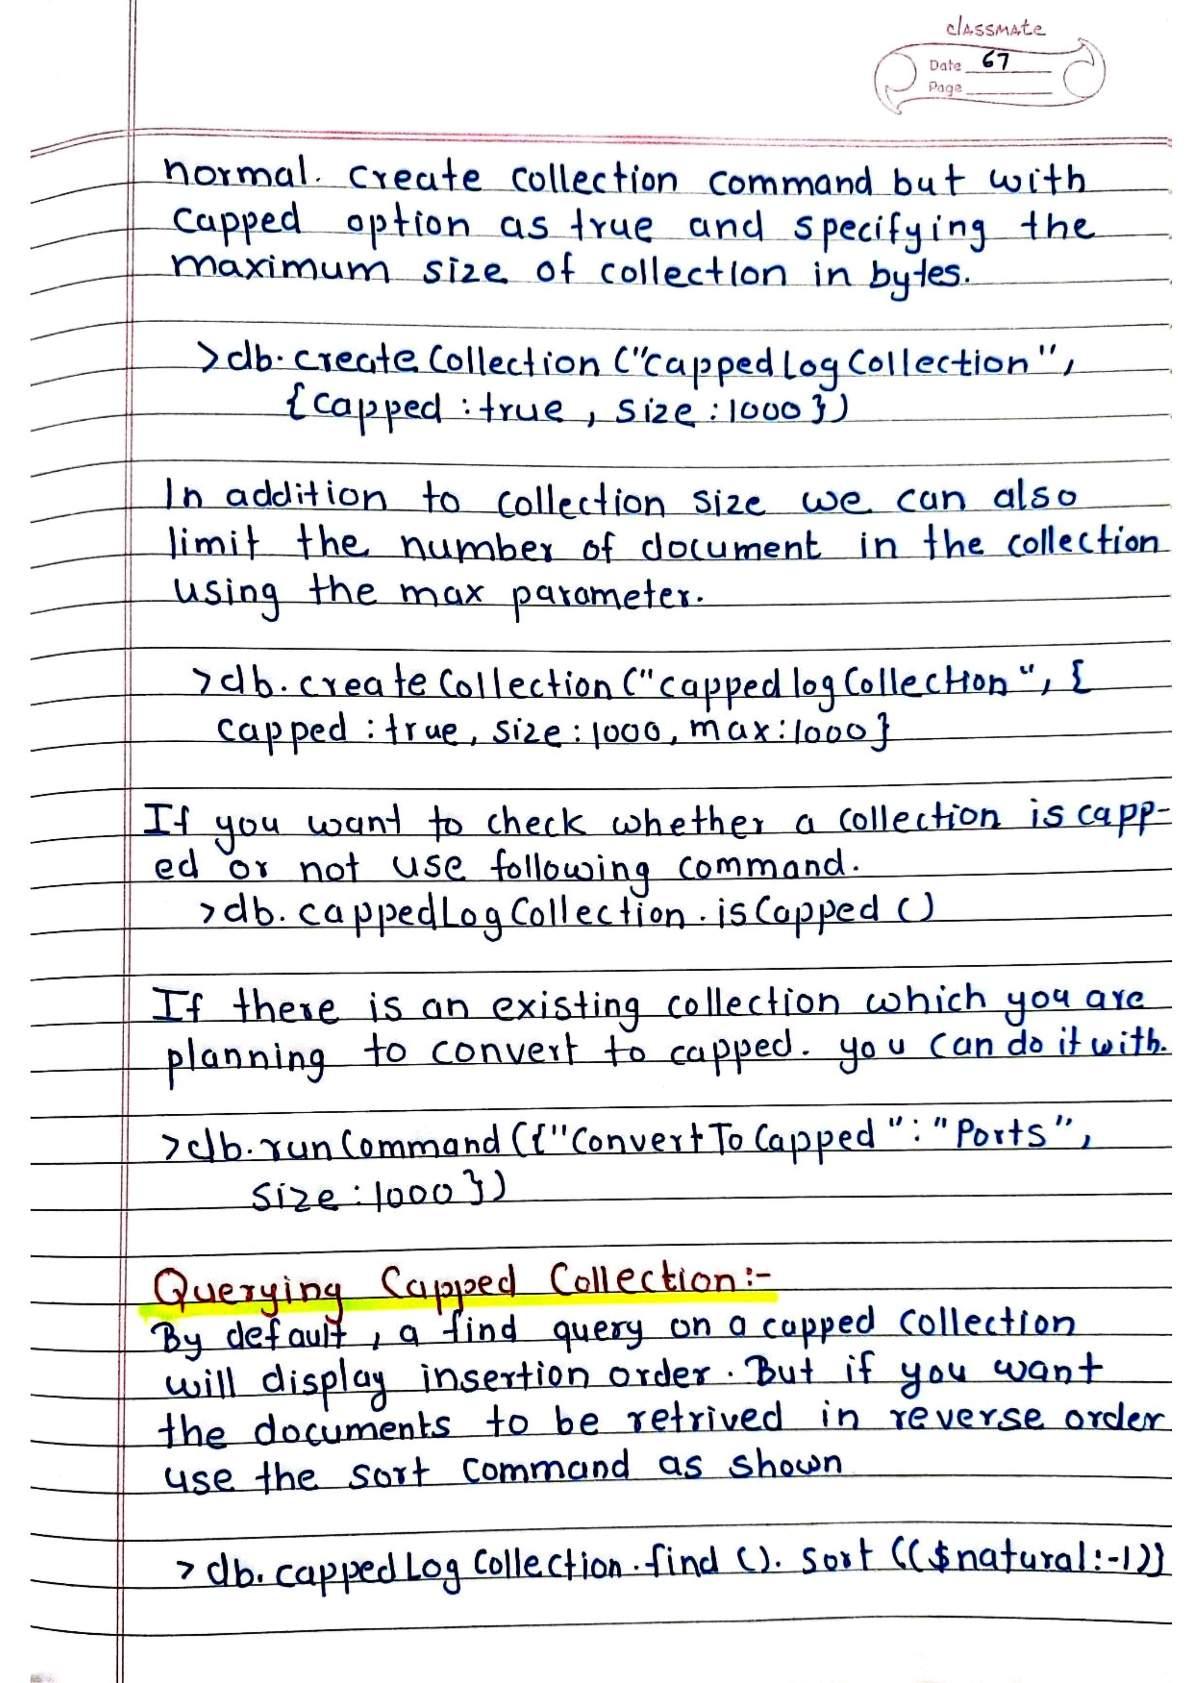 classmate
Date 67
Page
normal. create collection command but with
capped option as true and specifying the
maximum size of collection in bytes.
>db.createCollection("cappedLogCollection",
{capped:true, size:1000})
In addition to collection size we can also
limit the number of document in the collection
using the max parameter.
>db.createCollection("cappedlogCollection", {
capped:true, size:1000, max:1000}
If you want to check whether a collection is capp-
ed or not use following command.
>db.cappedLogCollection.isCapped()
If there is an existing collection which you are
planning to convert to capped. you can do it with.
>db.runCommand({"ConvertToCapped":"Ports",
size:1000})
Querying Capped Collection:-
By default, a find query on a capped collection
will display insertion order. But if you want
the documents to be retrived in reverse order
use the sort command as shown
>db.cappedLogCollection.find().sort(($natural:-1)}